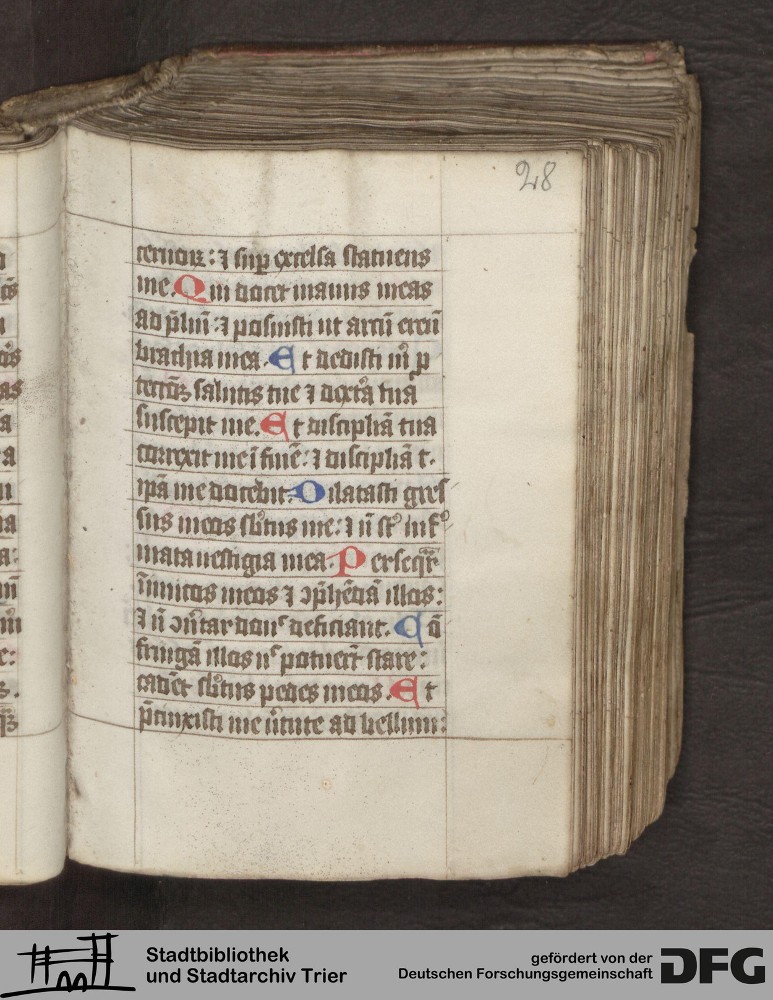 28
ceruoꝝ: ⁊ suꝑ excelsa statuens
me. Qui docet manus meas
ad p̄liū: ⁊ posuisti ut arcū ereū
brachia mea. Et dedisti m̄ ꝓ
tectōꝫ salutis tue ⁊ dext̄a tua
suscepit me. Et disciplīa tua
correxit me ī finē: ⁊ disciplīa t.
ip̄a me docebit. Dilatasti gres
sus meos sb̄tus me: ⁊ n̄ st̄ inf
mata uestigia mea. Perseqr̄
inimicos meos ⁊ ꝯp̄hēdā illos:
⁊ n̄ ꝯūtar donͨ deficiant. Cō
fringā illos nͨ potuer̄t stare:
cadēt sb̄tus pedes meos. Et
p̄cinxisti me ũtute ad bellum:
Stadtbibliothek
und Stadtarchiv Trier
gefördert von der
Deutschen Forschungsgemeinschaft
DFG